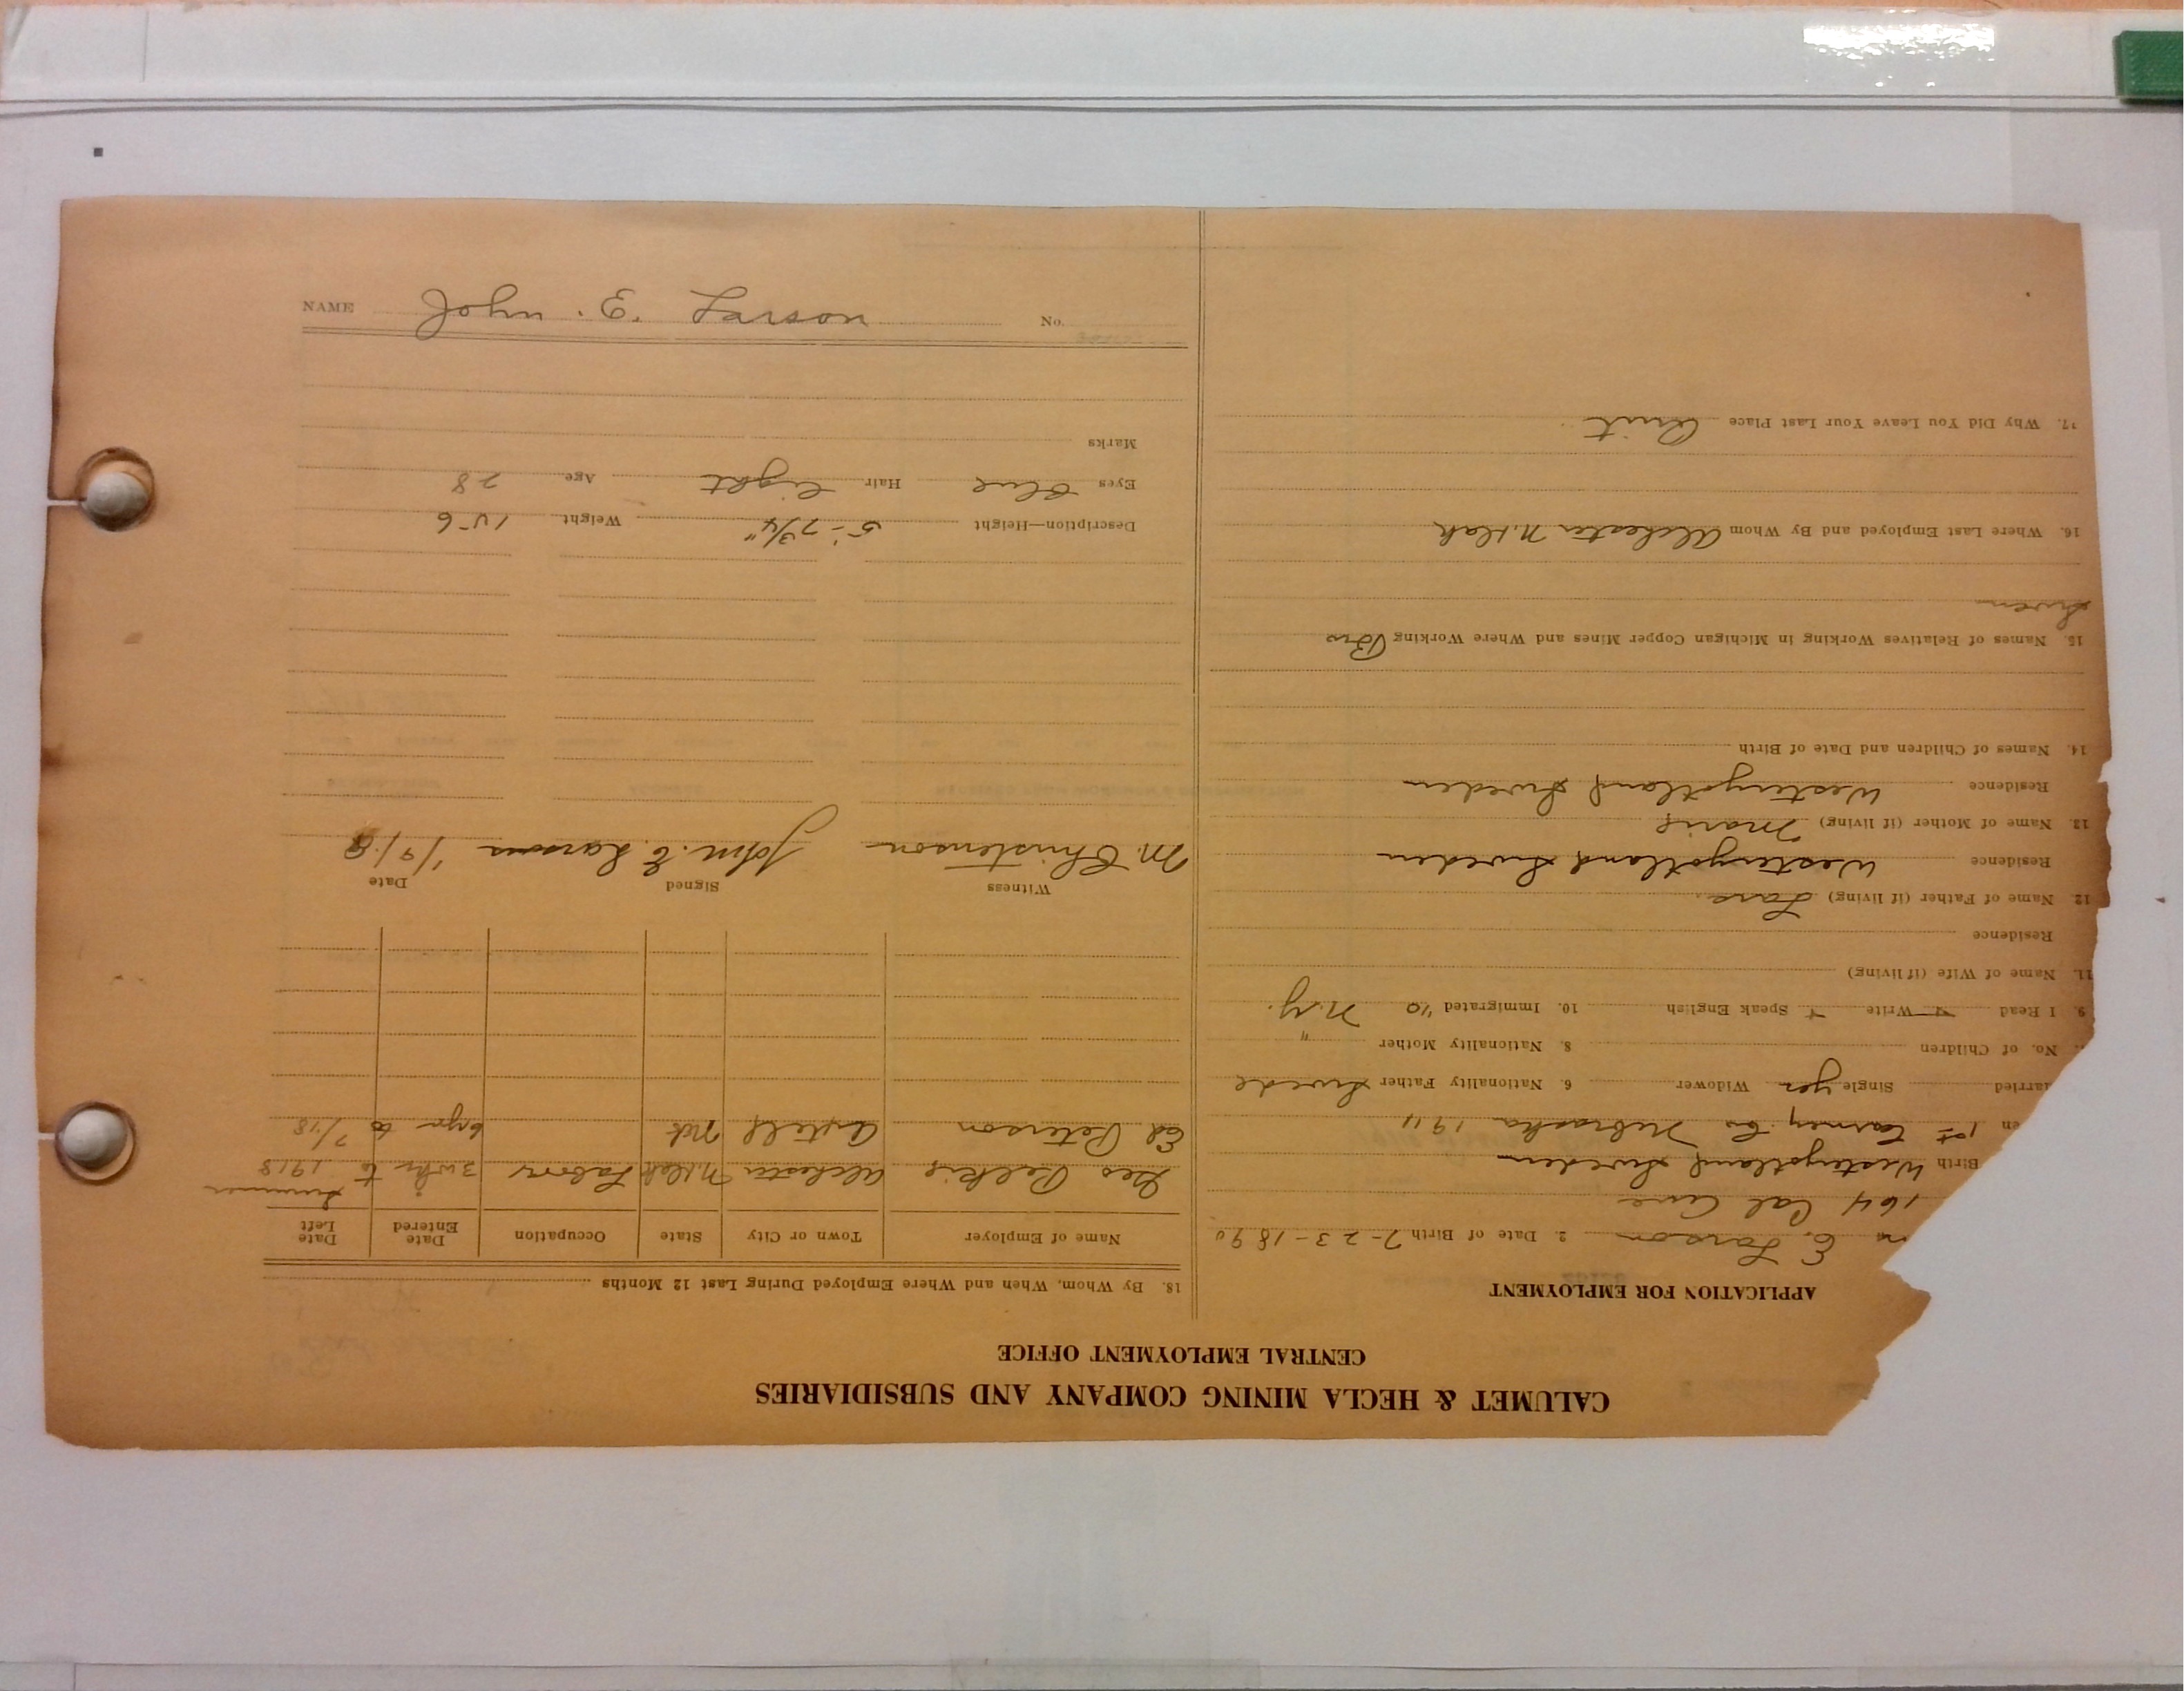 CALUMET & HECLA MINING COMPANY AND SUBSIDIARIES
CENTRAL EMPLOYMENT OFFICE
APPLICATION FOR EMPLOYMENT
E. Larson 2. Date of Birth 7-23-1890
164 Cal Ave
Birth Westergotland Sweden
en 1st Co Nebraska 1911
arried Single yes Widower 6. Nationality Father Swede
No. of Children 8. Nationality Mother "
9. I Read Write Speak English 10. Immigrated '10 N.Y.
11. Name of Wife (if living)
Residence
12. Name of Father (if living) Lars
Residence Westergotland Sweden
13. Name of Mother (if living)
Residence Westergotland Sweden
14. Names of Children and Date of Birth
15. Names of Relatives Working in Michigan Copper Mines and Where Working Bro
Sven
16. Where Last Employed and By Whom N. Dak
17. Why Did You Leave Your Last Place Quit
18. By Whom, When and Where Employed During Last 12 Months
Name of Employer Town or City State Occupation Date Entered Date Left
Summer
Geo N. Dak Labor 3 wks to 1918
Ed Peterson to 7/18
Witness Signed Date
M. Christenson John. E. Larson
Description—Height 5'-7 3/4" Weight 156
Eyes Blue Hair Light Age 28
Marks
NAME John. E. Larson No.